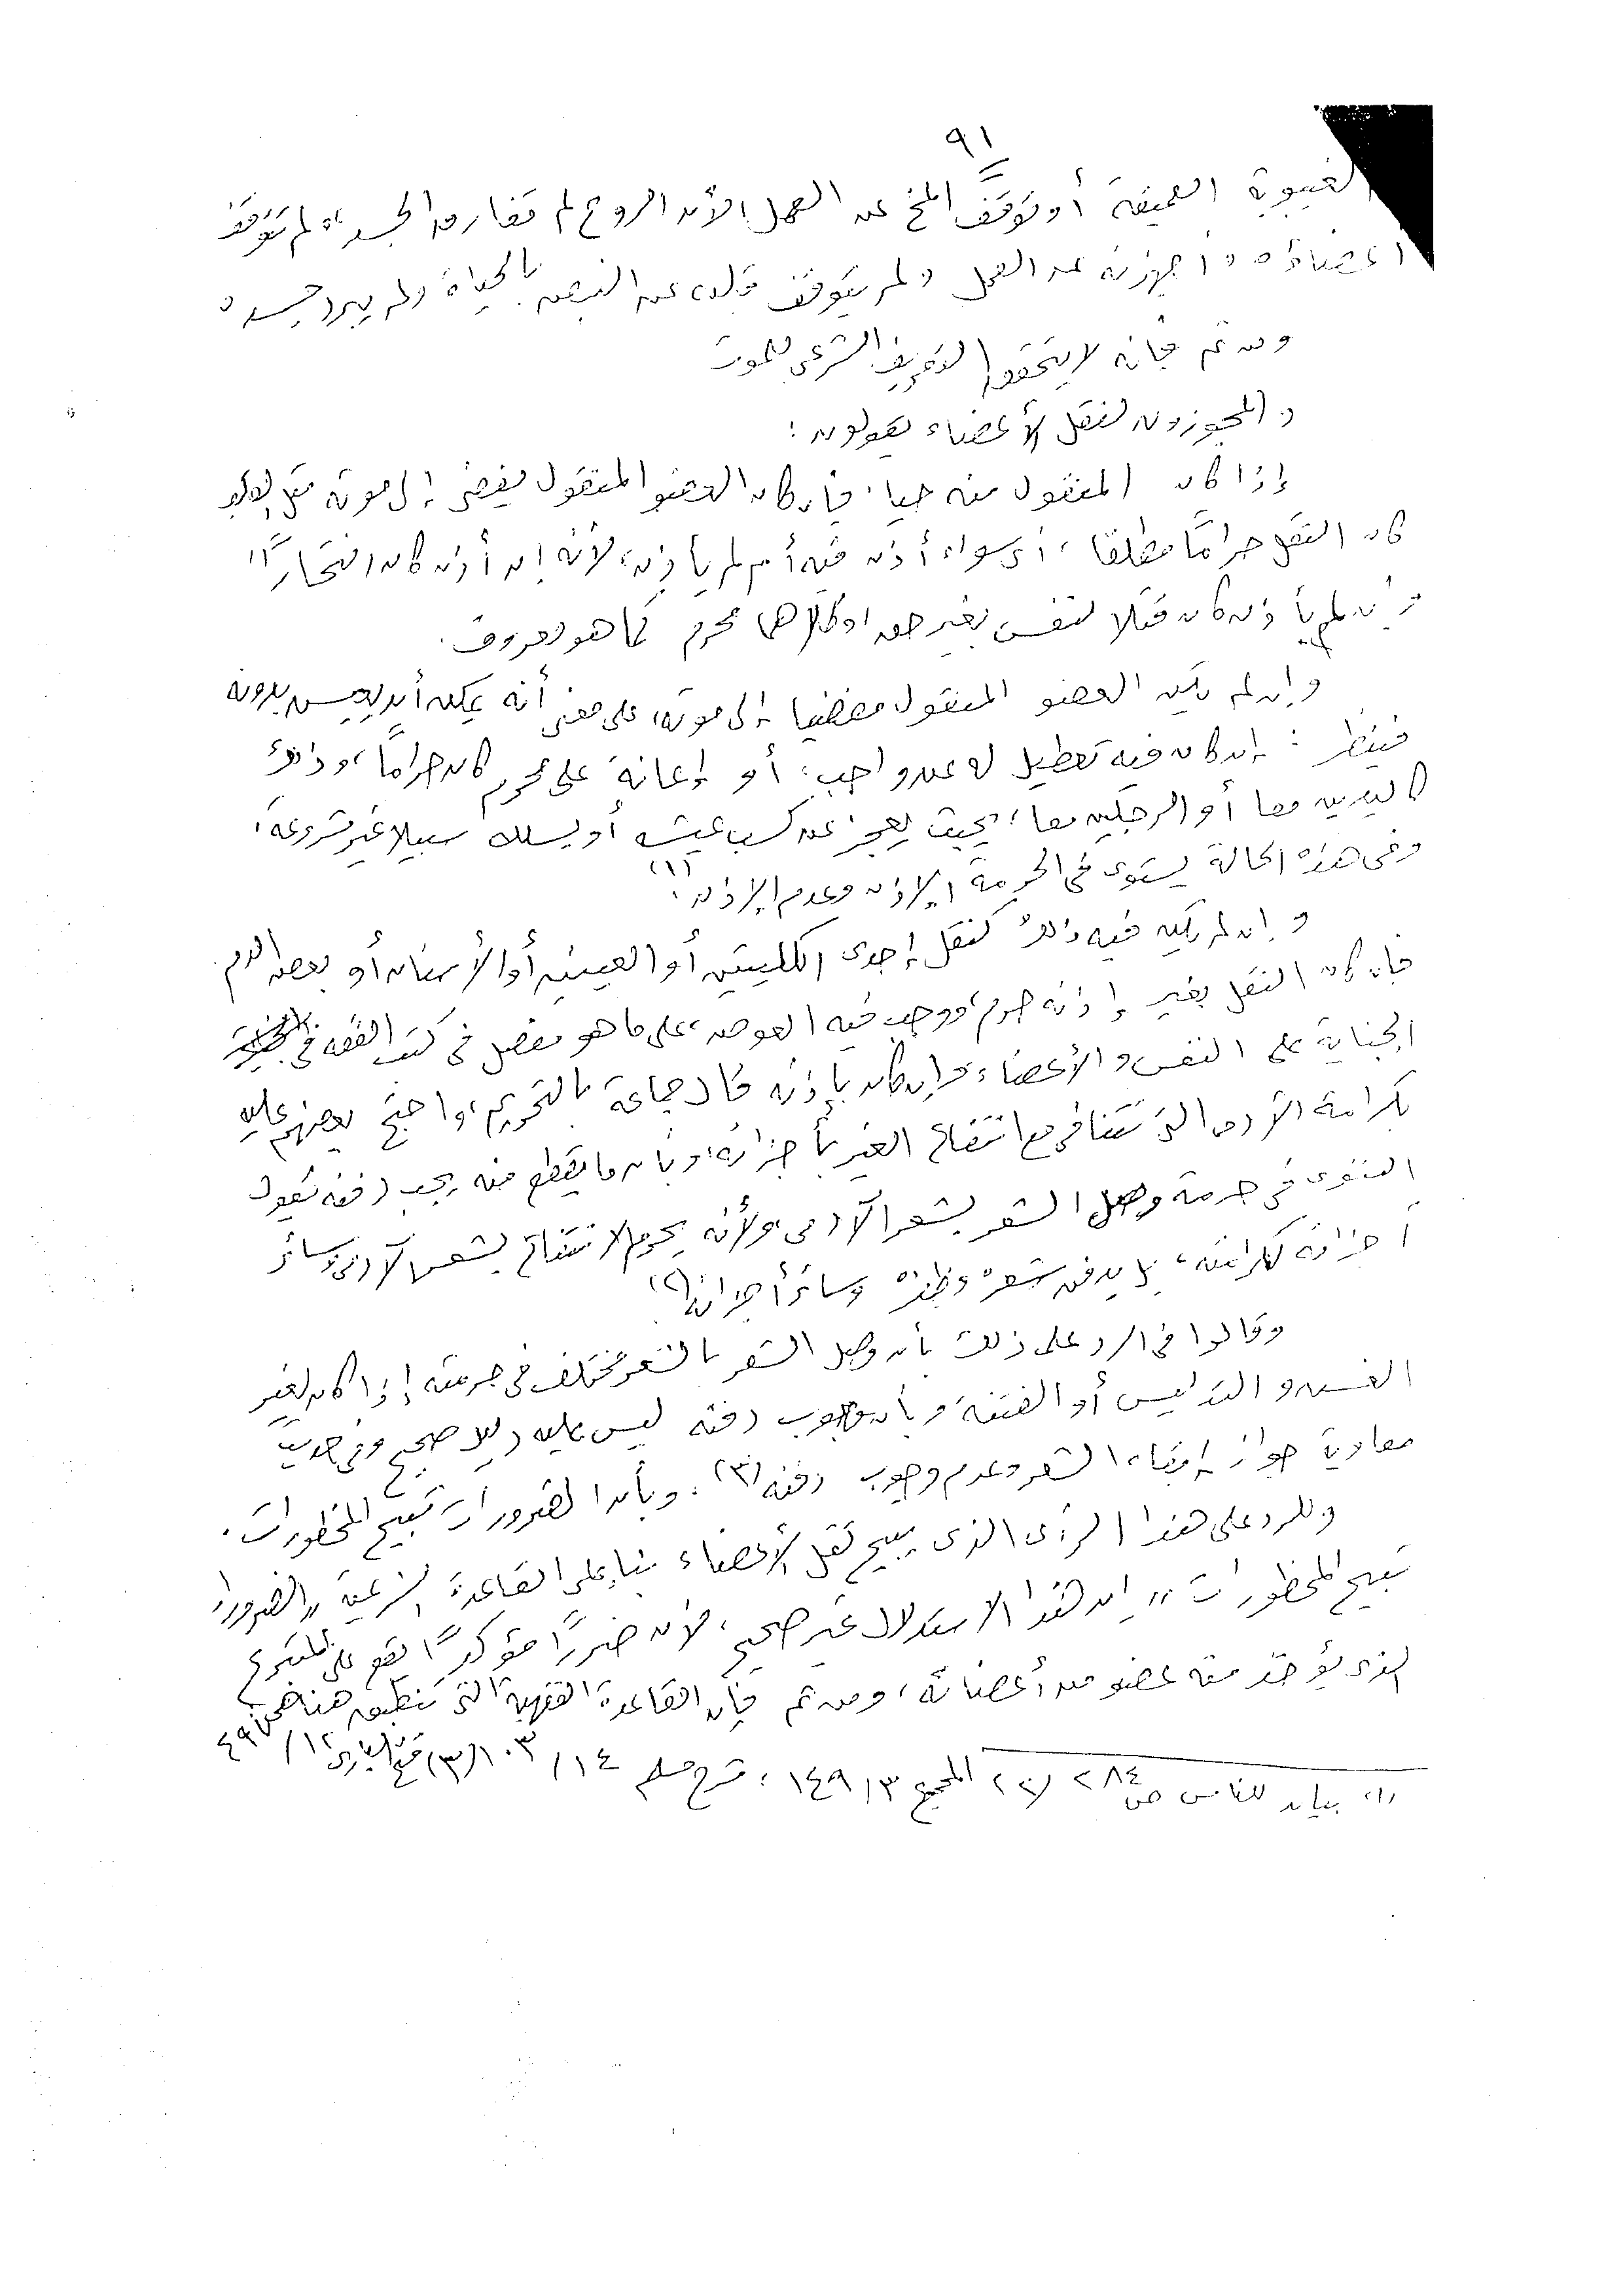 ٩١
الغيبوبة العميقة أو توقف المخ عن العمل لأن الروح لم تفارق الجسد ولم تتوقف
أعضاؤه وأجهزته عن العمل ولم يتوقف قلبه عن النبض بالحياة ولم يبرد جسده
ومن ثم فإنه لا يتحقق التعريف الشرعى للموت
والمجوزون لنقل الأعضاء يقولون :
إذا كان المنقول منه حيا، فإن كان العضو المنقول يفضى إلى موته مثل القلب
كان النقل حرامًا مطلقا، أى سواء أذن فيه أم لم يأذن، لأنه إن أذن كان انتحارًا
وإن لم يأذن كان قتلا لنفس بغير حق وكلاهما محرم كما هو معروف.
وإن لم يكن العضو المنقول مفضيا إلى موته، على معنى أنه يمكن أن يعيش بدونه
فينظر : إن كان فيه تعطيل له عن واجب، أو إعانة على محرم كان حرامًا، وذلك
كاليدين معا أو الرجلين معا، بحيث يعجز عن كسب عيشه أو يسلك سبيلا غير مشروعة،
وفى هذه الحالة يستوى فى الحرمة الإذن وعدم الإذن.(١)
وإن لم يكن فيه ذلك كنقل إحدى الكليتين أو العينين أو الأسنان أو بعض الدم
فإن كان النقل بغير إذنه حرم، ووجب فيه العوض، على ما هو مفصل فى كتب الفقه فى
الجناية على النفس والأعضاء وإن كان بإذنه قال جماعة بالتحريم، واحتج بعضهم عليه
بكرامة الآدمى التى تتنافى مع انتفاع الغير بأجزائه، وبأن ما يقطع منه يجب دفنه يقول
النووى فى حرمة وصل الشعر بشعر الآدمى ولأنه يحرم الانتفاع بشعر الآدمى وسائر
أجزائه لكرامته، بل يدفن شعره وظفره وسائر أجزائه(٢)
وقالوا فى الرد على ذلك بأن وصل الشعر بالشعر مختلف فى حرمته إذا كان لغير
الغش والتدليس أو الفتنة وبأن وجوب دفنه ليس عليه دليل صحيح وفى حديث
معاوية جواز إبقاء الشعر وعدم وجوب دفنه(٣). وبأن الضرورات تبيح المحظورات.
وللرد على هذا الرأى الذى يبيح نقل الأعضاء بناء على القاعدة الشرعية "الضرورات
تبيح المحظورات" إن هذا الاستدلال غير صحيح، لأن ضررًا مؤكدًا يقع على المتبرع
الذى يؤخذ منه عضو من أعضائه، ومن ثم فإن القاعدة الفقهية التى تنطبق هنا هى
(١) بيان للناس ص ٢٨٤ (٢) المجموع ١٤٩/٣ ، شرح مسلم ١٠٣/١٤ (٣) فتح البارى ٤٩٧/١٢